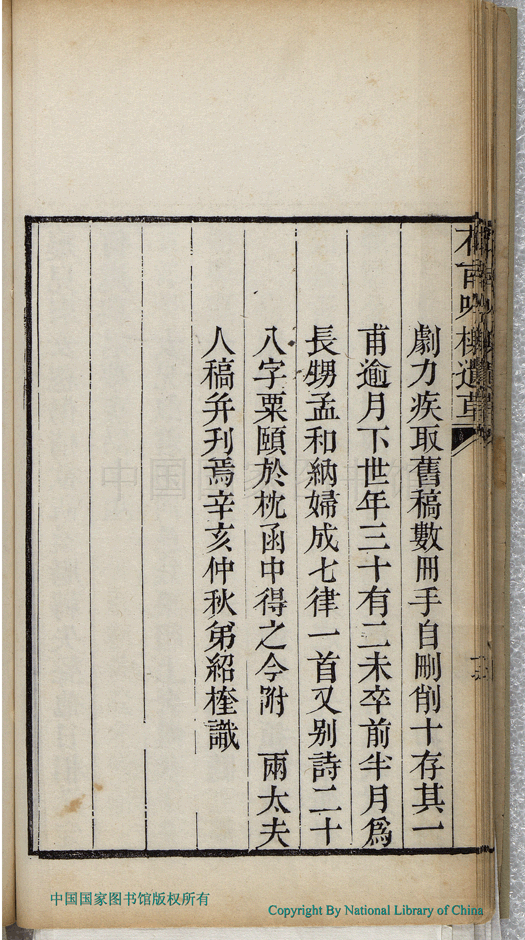 劇力疾取舊稿數冊手自刪削十存其一
甫逾月下世年三十有二未卒前半月爲
長甥孟和納婦成七律一首又别詩二十
八字粟頤於枕函中得之今附　兩太夫
人稿并刋焉辛亥仲秋弟紹桎識
中国国家图书馆版权所有
Copyright By National Library of China